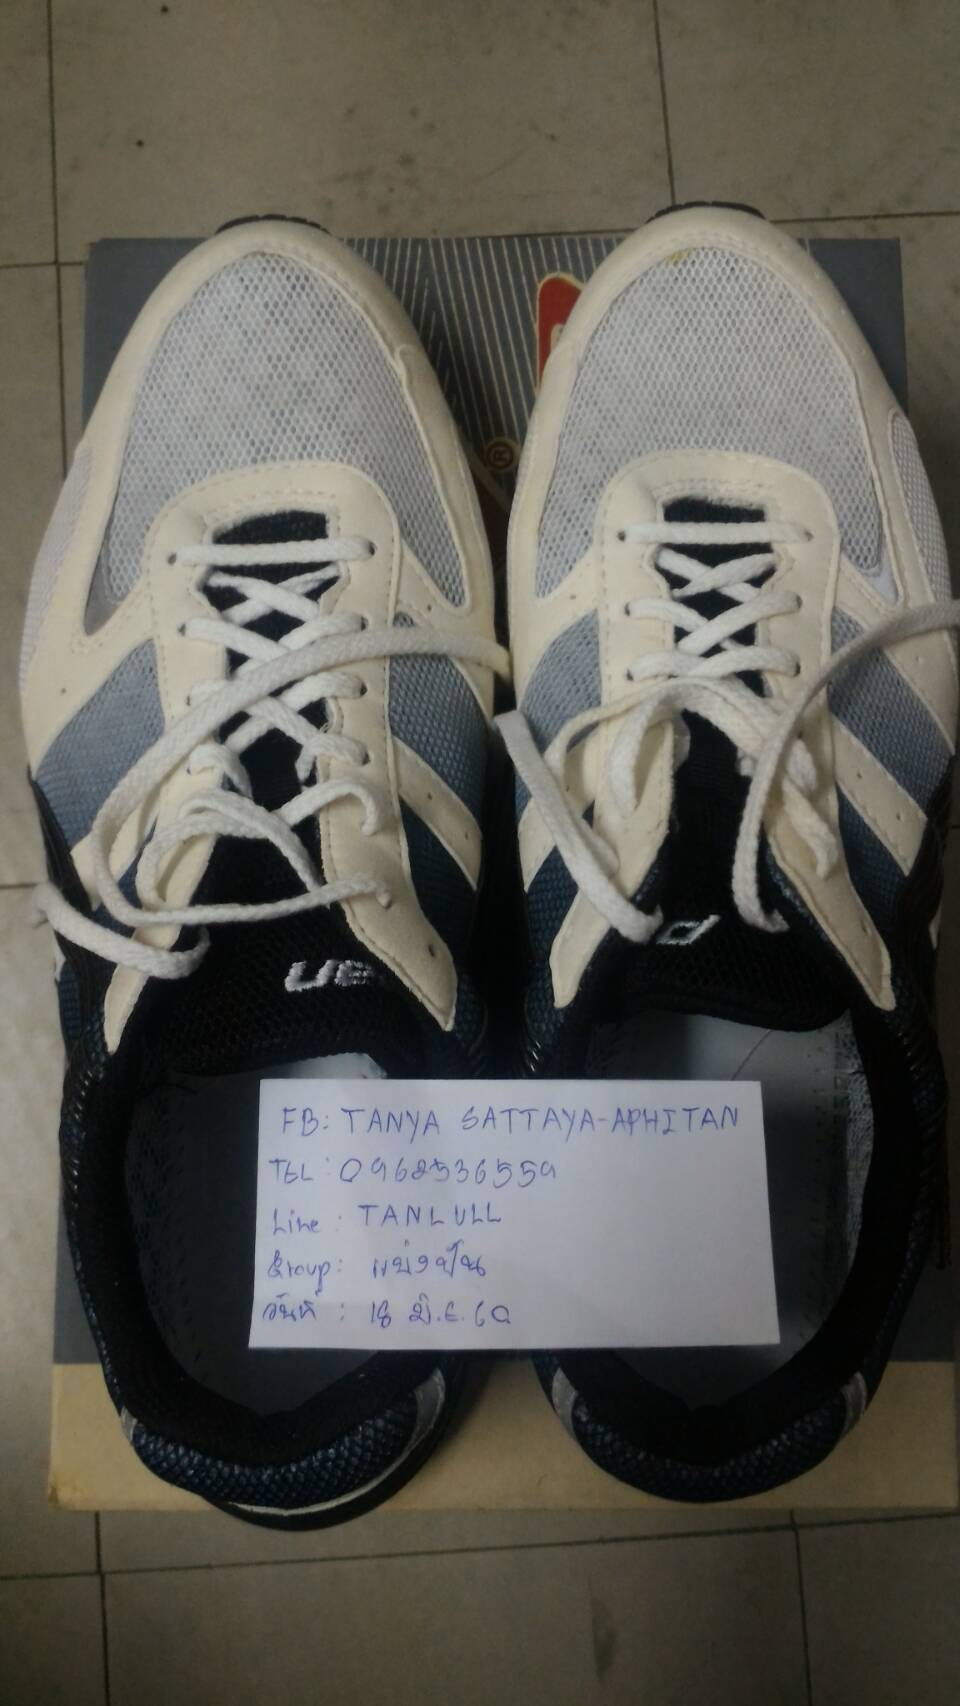 ®
FB: TANYA SATTAYA-APHITAN
TEL: 0962536559
Line: TANLULL
Group: แบ่งปัน
วันที่ : 18 มิ.ย. 60